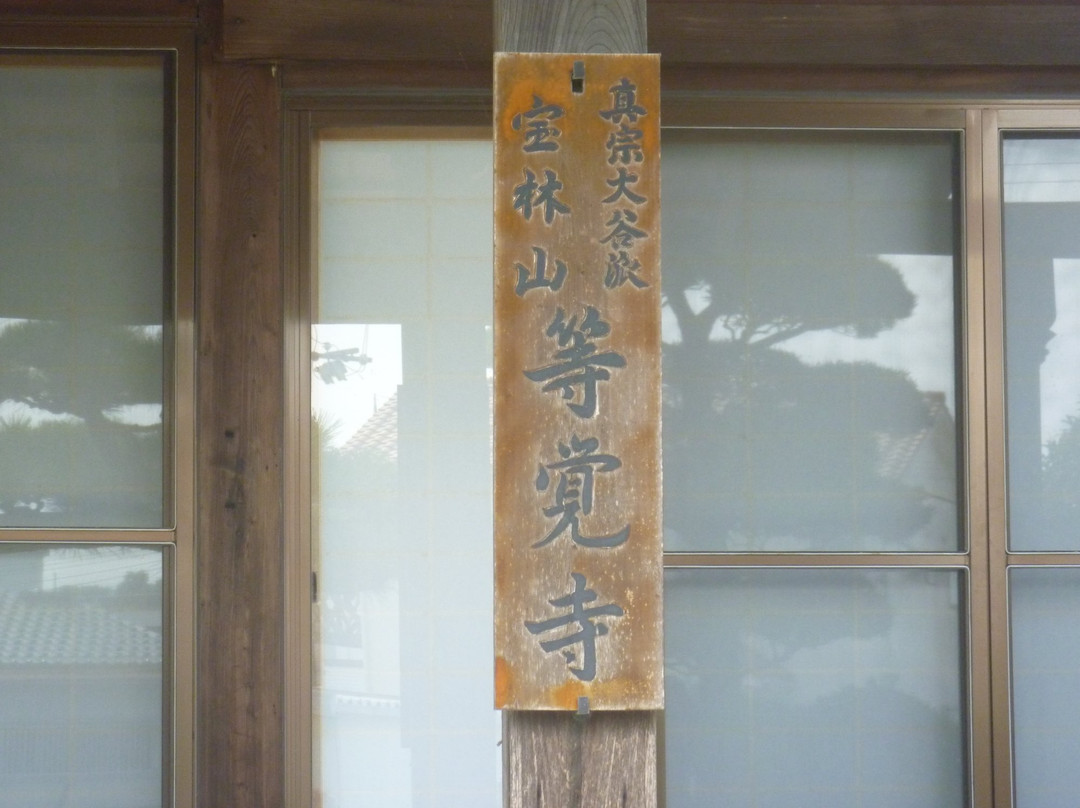 真宗大谷派
宝林山
等覚寺